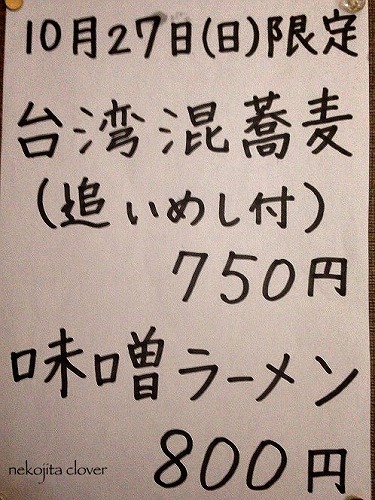 10月27日(日)限定
台湾混蕎麦
(追いめし付)
750円
味噌ラーメン
800円
nekojita clover